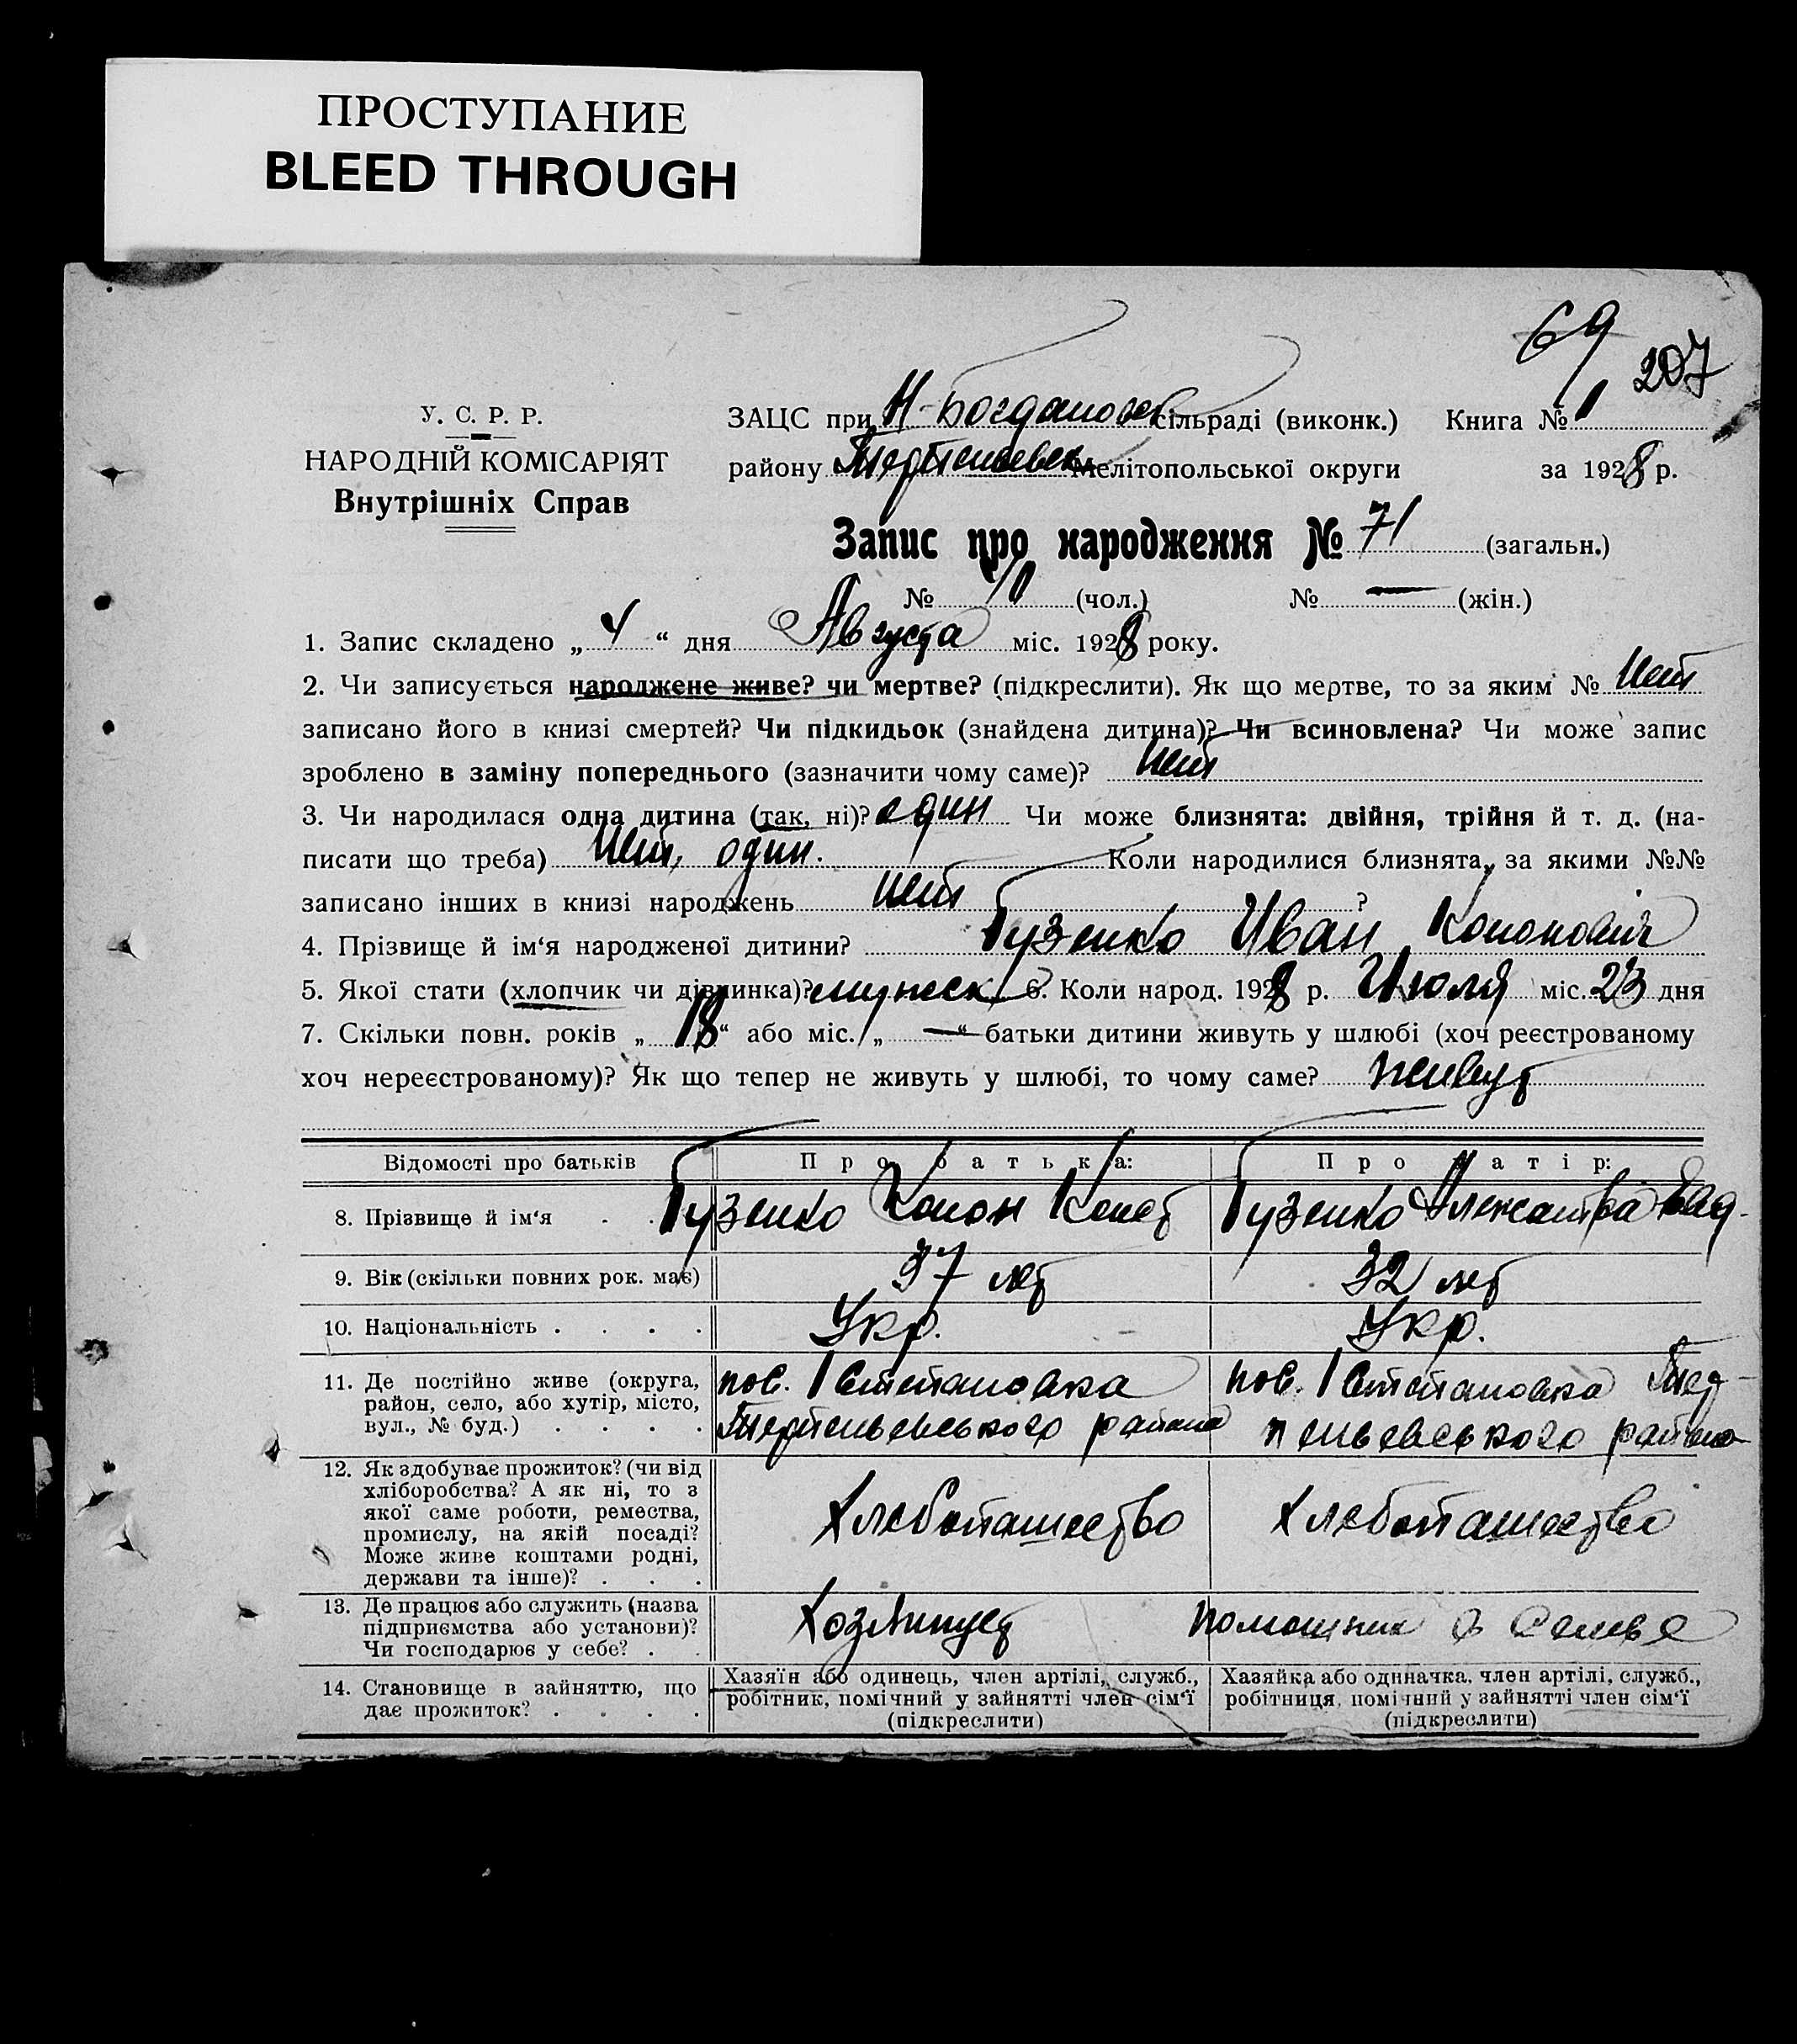 ПРОСТУПАНИЕ
BLEED THROUGH
69
207
У. С. Р. Р.
НАРОДНІЙ КОМІСАРІЯТ
Внутрішніх Справ
ЗАЦС при Н-Богдановск сільраді (виконк.) Книга № 1
району Терпеньевск Мелітопольської округи за 1928 р.
Запис про народження № 71 (загальн.)
№ (чол.) № — (жін.)
1. Запис складено „ 4 “ дня Августа міс. 1928 року.
2. Чи записується народжене живе? чи мертве? (підкреслити). Як що мертве, то за яким № Нет
записано його в книзі смертей? Чи підкидьок (знайдена дитина)? Чи всиновлена? Чи може запис
зроблено в заміну попереднього (зазначити чому саме)? Нет
3. Чи народилася одна дитина (так, ні)? один Чи може близнята: двійня, трійня й т. д. (на-
писати що треба) Нет, один. Коли народилися близнята, за якими №№
записано інших в книзі народжень нет ?
4. Прізвище й ім‘я народженої дитини? Гузенко Иван Кононович
5. Якої стати (хлопчик чи дівчинка)? мужеск 6. Коли народ. 1928 р. Июля міс. 23 дня
7. Скільки повн. років „ 18 “ або міс. „ — “ батьки дитини живуть у шлюбі (хоч реєстрованому
хоч нереєстрованому)? Як що тепер не живуть у шлюбі, то чому саме? живут
Відомості про батьків Про батька: Про матір:
8. Прізвище й ім‘я . . Гузенко Конон Гузенко Александра
9. Вік (скільки повних рок. має) 37 лет 32 лет
10. Національність . . . . Укр. Укр.
11. Де постійно живе (округа, район, село, або хутір, місто, вул., № буд.) . . . .
пос. 1 Степановка
Терпеньевського района
пос. 1 Степановка Тер-
пеньевського района
12. Як здобуває прожиток? (чи від
хліборобства? А як ні, то з
якої саме роботи, ремества,
промислу, на якій посаді?
Може живе коштами родні,
держави та інше)? . . .
Хлебопашество Хлебопашество
13. Де працює або служить (назва
підприємства або установи)?
Чи господарює у себе? . .
Хозяинует помощник в семье
14. Становище в зайняттю, що
дає прожиток? . . . .
Хазяїн або одинець, член артілі, служб.,
робітник, помічний у зайнятті член сім‘ї
(підкреслити)
Хазяйка або одиначка, член артілі, служб.,
робітниця, помічний у зайнятті член сім‘ї
(підкреслити)